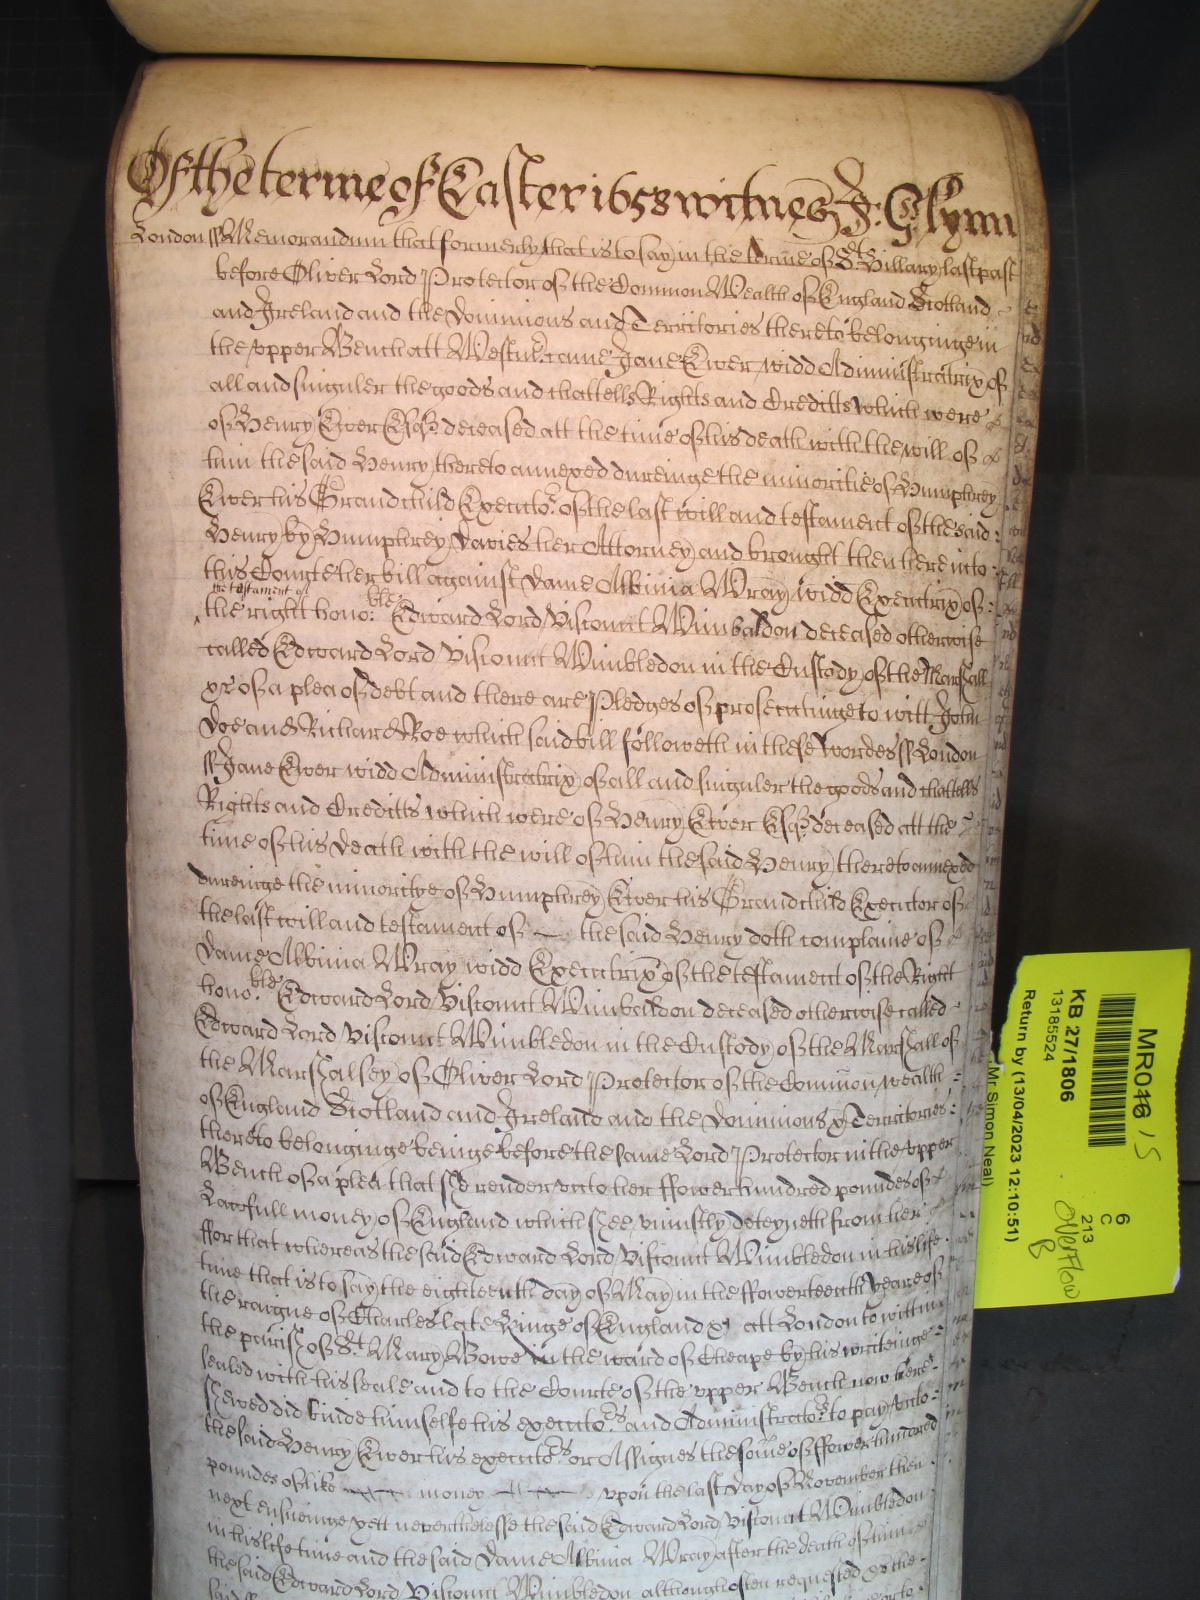 Of the terme of Easter 1658 witnes J: Glynn
London ss Memorandum that formerly that is to say in the terme of St Hillary last past
before Oliver Lord Protector of the Common Wealth of England Scotland
and Ireland and the Dominions and Territories thereto belonginge in
the upper Bench att Westmr came Jane Ewer widd Administratrix of
all and singuler the goods and chattells Rights and Creditts which were
of Henry Ewer Esqr deceased att the time of his death with the will of
him the said Henry thereto annexed dureinge the minoritie of Humphrey
Ewer his Grandchild Executor of the last will and testament of the said
Henry by Humphrey Davies her Attorney and brought then here into
this Courte her bill against Dame Albinia Wray widd Executrix of
the testament of
the right hono:ble Edward Lord Viscount Wimbaldon deceased otherwise
called Edward Lord Viscount Wimbledon in the Custody of the Marshall
xc of a plea of debt and there are Pledges of prosecutinge to witt John
Doe and Richard Roe which said bill followeth in these wordes ss London
ss Jane Ewer widd Administratrix of all and singuler the goods and chattells
Rights and Creditts which were of Henry Ewer Esqr deceased att the
time of his death with the will of him the said Henry thereto annexed
dureinge the minoritye of Humphrey Ewer his Grandchild Executor of
the last will and testament of the said Henry doth complaine of
Dame Albinia Wray widd Executrix of the testament of the Right
hono:ble Edward Lord Viscount Wimbaldon deceased otherwise called
Edward Lord Viscount Wimbledon in the Custody of the Marshall of
the Marshalsey of Oliver Lord Protector of the Common wealth
of England Scotland and Ireland and the Dominions & Territories
thereto belonginge beinge before the same Lord Protector in the upper
Bench of a plea that she render unto her ffower hundred poundes of
Lawfull money of England which shee uniustly deteyneth from her
ffor that whereas the said Edward Lord Viscount Wimbledon in his life
time that is to say the eighteenth day of May in the ffowerteenth yeare of
the raigne of Charles late Kinge of England xc att London to witt in
the parish of St Mary Bowe in the ward of Cheape by his writeinge
sealed with his seale and to the Courte of the upper Bench now here
shewed did binde himselfe his executors and Administrators to pay unto
the said Henry Ewer his executors or Assignes the some of ffower hundred
poundes of like money upon the last day of November then
next ensueinge yett neverthelesse the said Edward Lord Viscount Wimbledon
in his life time and the said Dame Albinia Wray after the death of him
the said Edward Lord Viscount Wimbledon although often requested
MR046 / 5
KB 27/1806
13185524
Return by (13/04/2023 12:10:51)
(Mr Simon Neal)
6
C
213
OVERFLOW
B